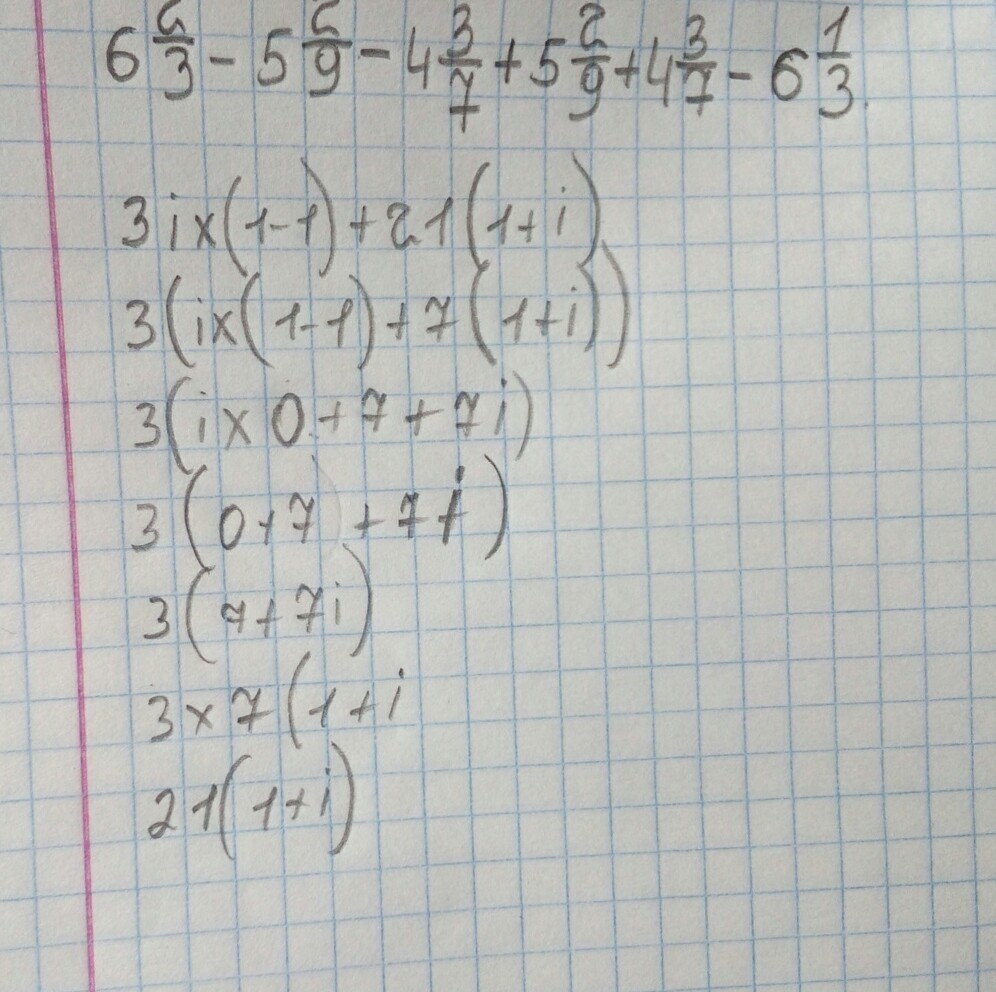 6 2/3 - 5 2/9 - 4 3/7 + 5 2/9 + 4 3/7 - 6 1/3
3i×(1-1)+21(1+i)
3(i×(1-1)+7(1+i))
3(i×0+7+7i)
3(0+7+7i)
3(7+7i)
3×7(1+i
21(1+i)